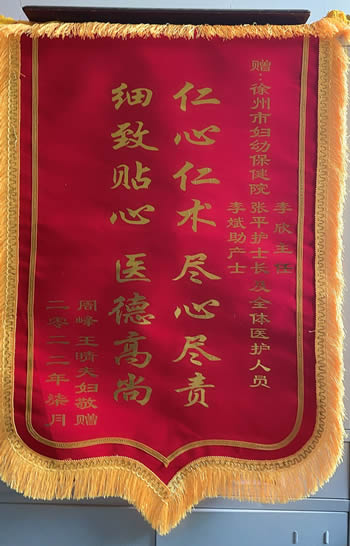 赠：徐州市妇幼保健院
李欣主任
张平护士长及全体医护人员
李斌助产士
仁心仁术 尽心尽责
细致贴心 医德高尚
周峰王晴夫妇敬赠
二零二二年柒月